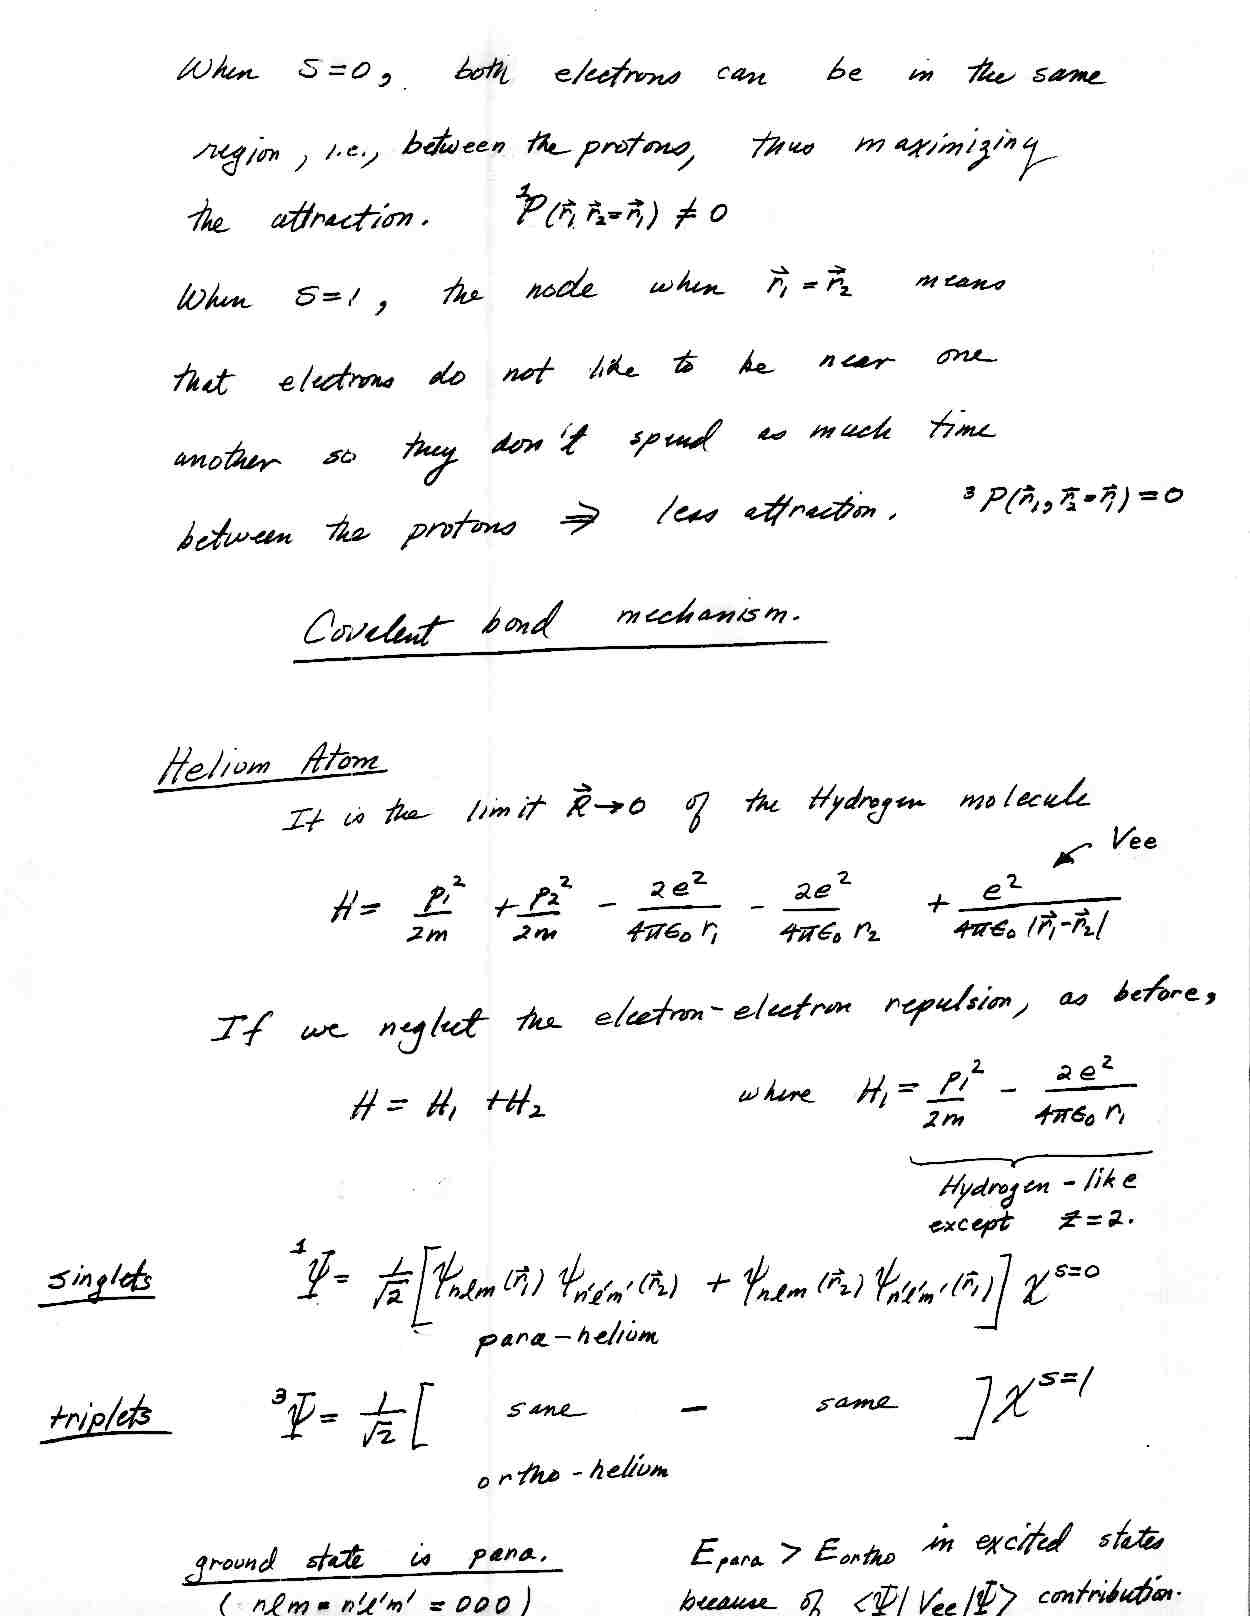 When S=0, both electrons can be in the same
region, i.e., between the protons, thus maximizing
the attraction. ¹P(r⃗₁ r⃗₂=r⃗₁) ≠ 0
When S=1, the node when r⃗₁ = r⃗₂ means
that electrons do not like to be near one
another so they don't spend as much time
between the protons ⇒ less attraction. ³P(r⃗₁, r⃗₂=r⃗₁) = 0
Covalent bond mechanism.
Helium Atom
It is the limit R⃗→0 of the Hydrogen molecule
Vee
H = p₁²/2m + p₂²/2m - 2e²/4πϵ₀ r₁ - 2e²/4πϵ₀ r₂ + e²/4πϵ₀ |r⃗₁-r⃗₂|
If we neglect the electron-electron repulsion, as before,
H = H₁ + H₂ where H₁ = p₁²/2m - 2e²/4πϵ₀ r₁
Hydrogen-like
except Z=2.
singlets ¹Ψ = 1/√2 [ψnlm(r⃗₁) ψn'l'm'(r⃗₂) + ψnlm(r⃗₂) ψn'l'm'(r⃗₁)] χ^S=0
para-helium
triplets ³Ψ = 1/√2 [ sane - same ] χ^S=1
ortho-helium
ground state is para. Epara > Eortho in excited states
(nlm = n'l'm' = 000) because of <Ψ|Vee|Ψ> contribution.